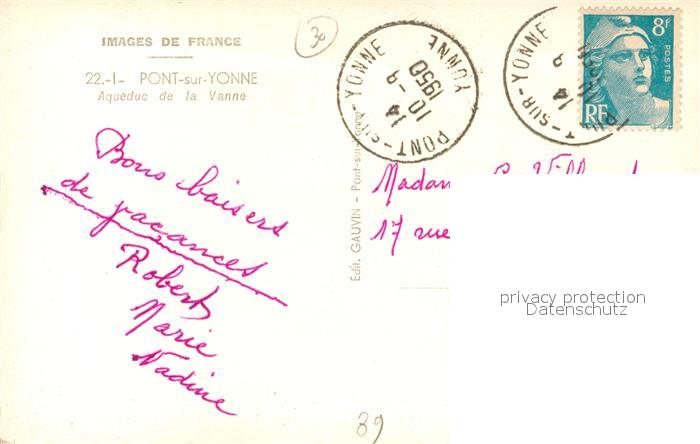 IMAGES DE FRANCE
22.-I- PONT-sur-YONNE
Aqueduc de la Vanne
30
PONT-SUR-YONNE
YONNE
14
10-9
1950
T-SUR-YONNE
14
9
8F
POSTES
RF
Bons baisers
de vacances
Robert
Marie
Nadine
Edit. GAUVIN - Pont-sur-Yonne
Madam
17 rue
privacy protection
Datenschutz
89